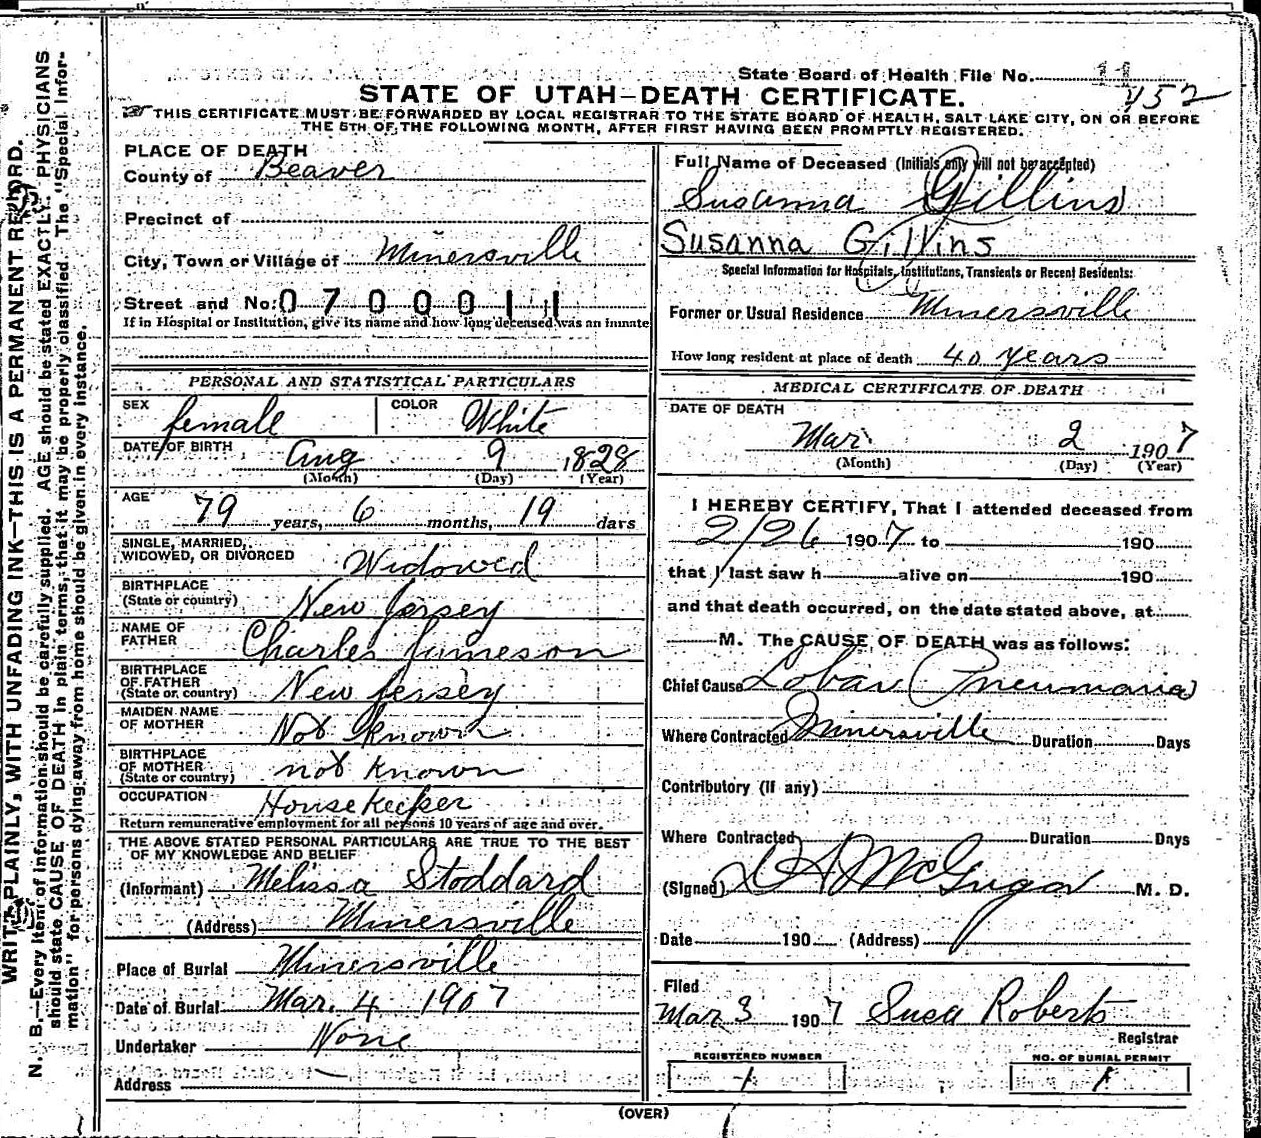 State Board of Health File No. 11
452
STATE OF UTAH—DEATH CERTIFICATE.
THIS CERTIFICATE MUST BE FORWARDED BY LOCAL REGISTRAR TO THE STATE BOARD OF HEALTH, SALT LAKE CITY, ON OR BEFORE
THE 5TH OF THE FOLLOWING MONTH, AFTER FIRST HAVING BEEN PROMPTLY REGISTERED.
WRITE PLAINLY, WITH UNFADING INK—THIS IS A PERMANENT RECORD.
N. B.—Every item of information should be carefully supplied. AGE should be stated EXACTLY. PHYSICIANS
should state CAUSE OF DEATH in plain terms, that it may be properly classified. The "Special Infor-
mation" for persons dying away from home should be given in every instance.
PLACE OF DEATH
County of Beaver
Precinct of
City, Town or Village of Minersville
Street and No. 0700011
If in Hospital or Institution, give its name and how long deceased was an inmate
PERSONAL AND STATISTICAL PARTICULARS
SEX female COLOR White
DATE OF BIRTH Aug 9 1828
(Month) (Day) (Year)
AGE 79 years, 6 months, 19 days
SINGLE, MARRIED,
WIDOWED, OR DIVORCED Widowed
BIRTHPLACE
(State or country) New Jersey
NAME OF
FATHER Charles Jameson
BIRTHPLACE
OF FATHER
(State or country) New Jersey
MAIDEN NAME
OF MOTHER Not Known
BIRTHPLACE
OF MOTHER
(State or country) not known
OCCUPATION House Keeper
Return remunerative employment for all persons 10 years of age and over.
THE ABOVE STATED PERSONAL PARTICULARS ARE TRUE TO THE BEST
OF MY KNOWLEDGE AND BELIEF
(Informant) Melissa Stoddard
(Address) Minersville
Place of Burial Minersville
Date of Burial Mar. 4 1907
Undertaker None
Address
Full Name of Deceased (Initials only will not be accepted)
Susanna Gillins
Susanna Gillins
Special Information for Hospitals, Institutions, Transients or Recent Residents:
Former or Usual Residence Minersville
How long resident at place of death 40 years
MEDICAL CERTIFICATE OF DEATH
DATE OF DEATH
Mar 2 1907
(Month) (Day) (Year)
I HEREBY CERTIFY, That I attended deceased from
2/26 1907 to 190
that I last saw h alive on 190
and that death occurred, on the date stated above, at
M. The CAUSE OF DEATH was as follows:
Chief Cause Lobar Pneumonia
Where Contracted Minersville Duration Days
Contributory (if any)
Where Contracted Duration Days
(Signed) M. D.
Date 190 (Address)
Filed
Mar 3 1907 Susa Roberts
Registrar
REGISTERED NUMBER NO. OF BURIAL PERMIT
1 1
(OVER)